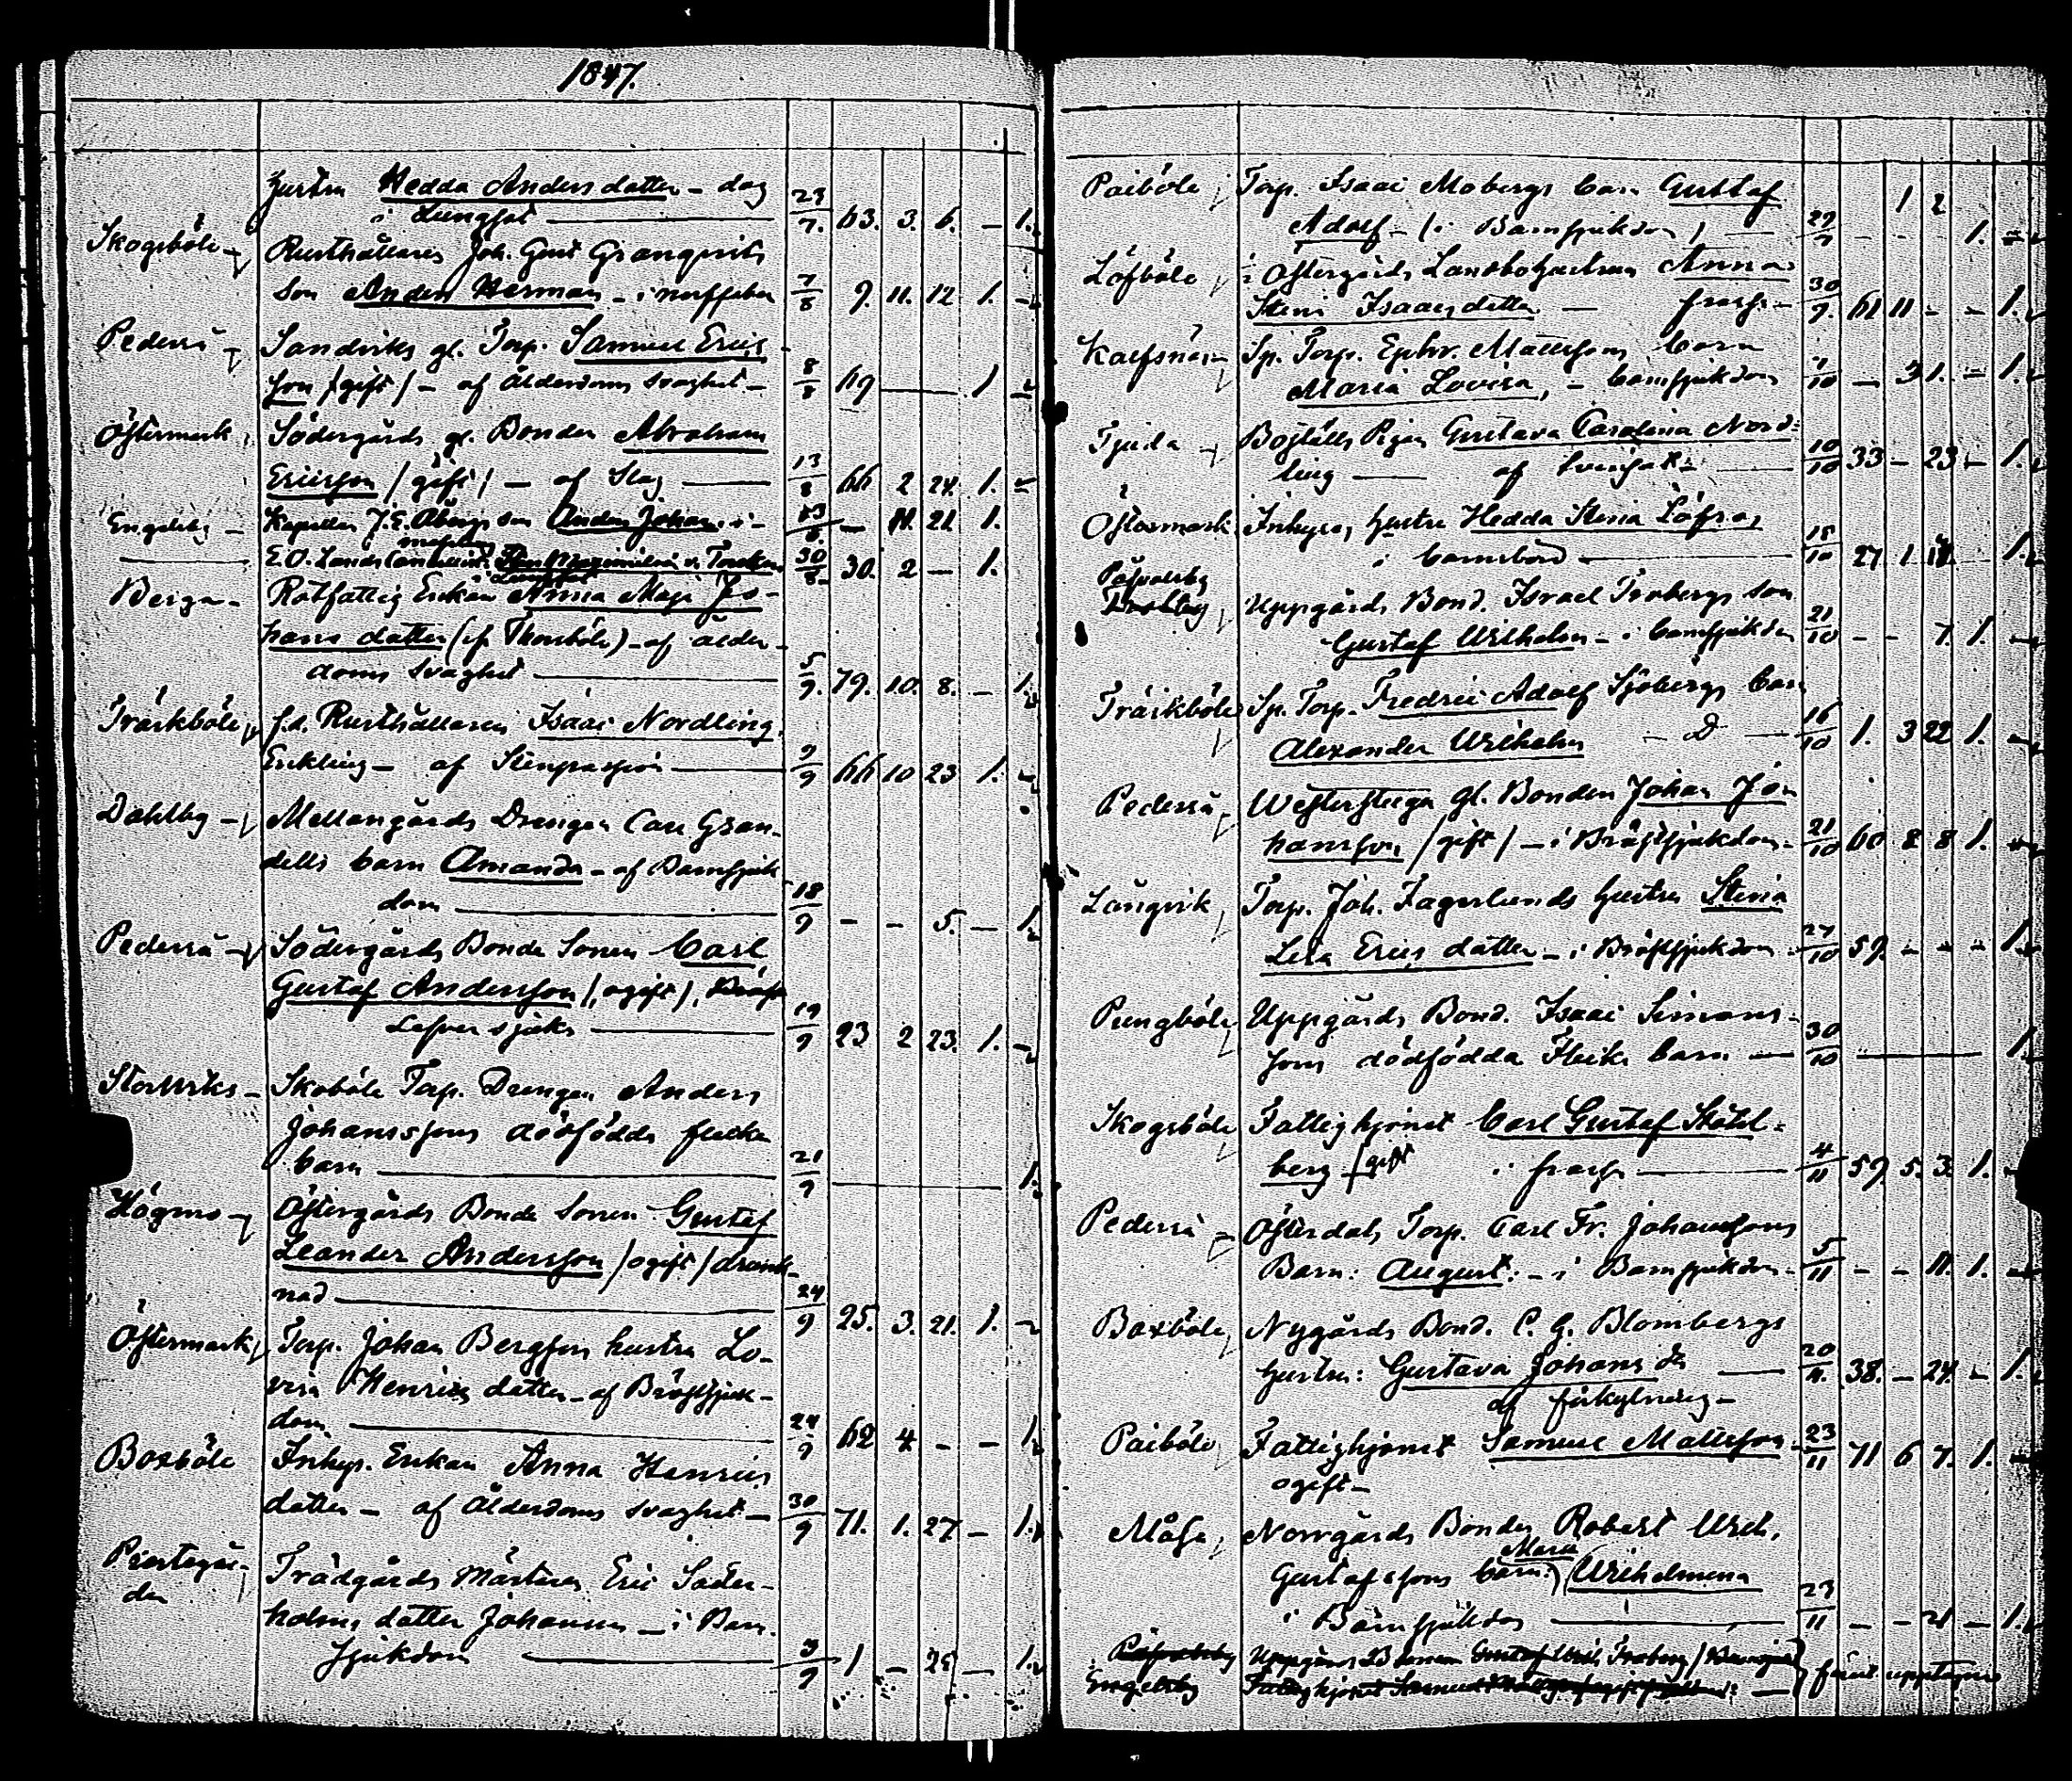 1847.
Hustru Hedda Andersdotter - dog
i Lungsot 23/7. 63. 3. 6. - 1.
Skogsböle - Rusthållares Joh. Gust Granqvists
Son Anders Herman - i 7/8 9. 11. 12 1. -
Pederså - Sandviks gl. Torp. Samuel Erics
son /gift/ - af Ålderdoms svaghet - 8/8 69 - 1 -
Östermark, Södergårds gl. Bonden Abraham
Ericsson /gift/ - af Slag 13/8 66 2 24. 1. -
Engelsby - Kapellan J. E. Åbergs son Anders Johan 13/8. - 11. 21. 1.
E.O. Lands Cancellist 30/8 30. 2 - 1.
i Lungsot
Berga - Rotfattig Enkan Anna Maja Jo-
hans dotter (if Thorsböle) - af ålder-
doms svaghet 5/9. 79. 10. 8. - 1.
Träskböle f.d. Rusthållaren Isaac Nordling,
Enkling - af Stenpassion 9/9 66 10 23 1. -
Dahlby - Mellangårds Drengen Carl Gran-
dells barn Amanda - af Barnsjuk
dom 18/9 - - 5. - 1.
Pederså - Södergårds Bonde Sonen Carl
Gustaf Andersson /ogift/, Bröst
Lefver sjuka 19/9 23 2 23. 1. -
Storwiks - Skoböle Torp. Drengen Anders
Johanssons dödfödda flicke
barn 21/9 1.
Högmo - Östergårds Bonde Sonen Gustaf
Leander Andersson /ogift/ drunk-
nad 24/9 25. 3. 21. 1. -
Östermark, Torp. Johan Bergsens hustru Lo-
visa Henrics dotter - af Bröstsjuk-
dom 24/9 62 4 - - 1.
Boxböle Inhys. Enkan Anna Henrics
dotter - af Ålderdoms svaghet - 30/9 71. 1. 27 - 1.
Prestegår-
den Trädgårds Mästaren Eric Söder-
holms dotter Johanna - i Barn-
sjukdom 3/9 1 - 25 - 1.
Paiböle, Torp. Isaac Mobergs barn Gustaf 1 2
Adolf - (i Barnsjukdom) 29/9 - - - 1. -
Löfböle i Östergårds Landbohustrun Anna
Stina Isaacsdotter - frossa - 30/9. 61 11 - - 1.
Kalfsnäs - Sp. Torp. Ephr. Mattssons barn
Maria Lovisa, - barnsjukdom 7/10 - 3 1. - 1.
Tjuda - Boställs Pigan Gustava Carolina Nord-
ling - af 10/10 33 - 23 - 1.
Östermark Inhyses hustru Hedda Stina Löfros
i barnsbörd 15/10 27 1 - 1.
Påsvalsby
Uppgårds Bond. Israel Frobergs son
Gustaf Wilhelm - i barnsjukdom 21/10 - - 7. 1. -
Träskböle Sp. Torp. Fredric Adolf Sjöbergs barn
Alexander Wilhelm - D 16/10 1. 3 22 1. -
Pederså Westersteega gl. Bonden Johan Jo-
hansson /gift/ - i Bröstsjukdom - 21/10 60 8 8 1. -
Långvik, Torp. Joh. Fagerlunds hustru Stina
Lisa Erics dotter - i Bröstsjukdom - 27/10 59. - - - 1.
Pungböle, Uppgårds Bond. Isaac Simons-
sons dödfödda Flicke barn - 30/10 1.
Skogsböle Fattighjonet Carl Gustaf Stähl-
berg /gift i frossa 4/11 59. 5. 3. 1. -
Pederså - Österdals Torp. Carl Fr. Johanssons
Barn: August: - i Barnsjukdom - 5/11 - - 11. 1. -
Boxböle, Nygårds Bond. C. G. Blombergs
hustru: Gustava Johans dr 20/11. 38. - 24. - 1.
af förkylning -
Paiböle, Fattighjonet Samuel Mattsson - 23/11 71 6 7. 1. -
ogift -
Måsa, Norrgårds Bonden Robert Wilh.
Gustafssons barn: Maria Wilhelmina
i Barnsjukdom 23/11 - - 21 - 1.
Påsvalsby Uppgårds Bd sonen Gustaf Wilh. Froberg /Barnsjuk
Engelsby Fattighjonet Samuel Mattsson förut upptagne